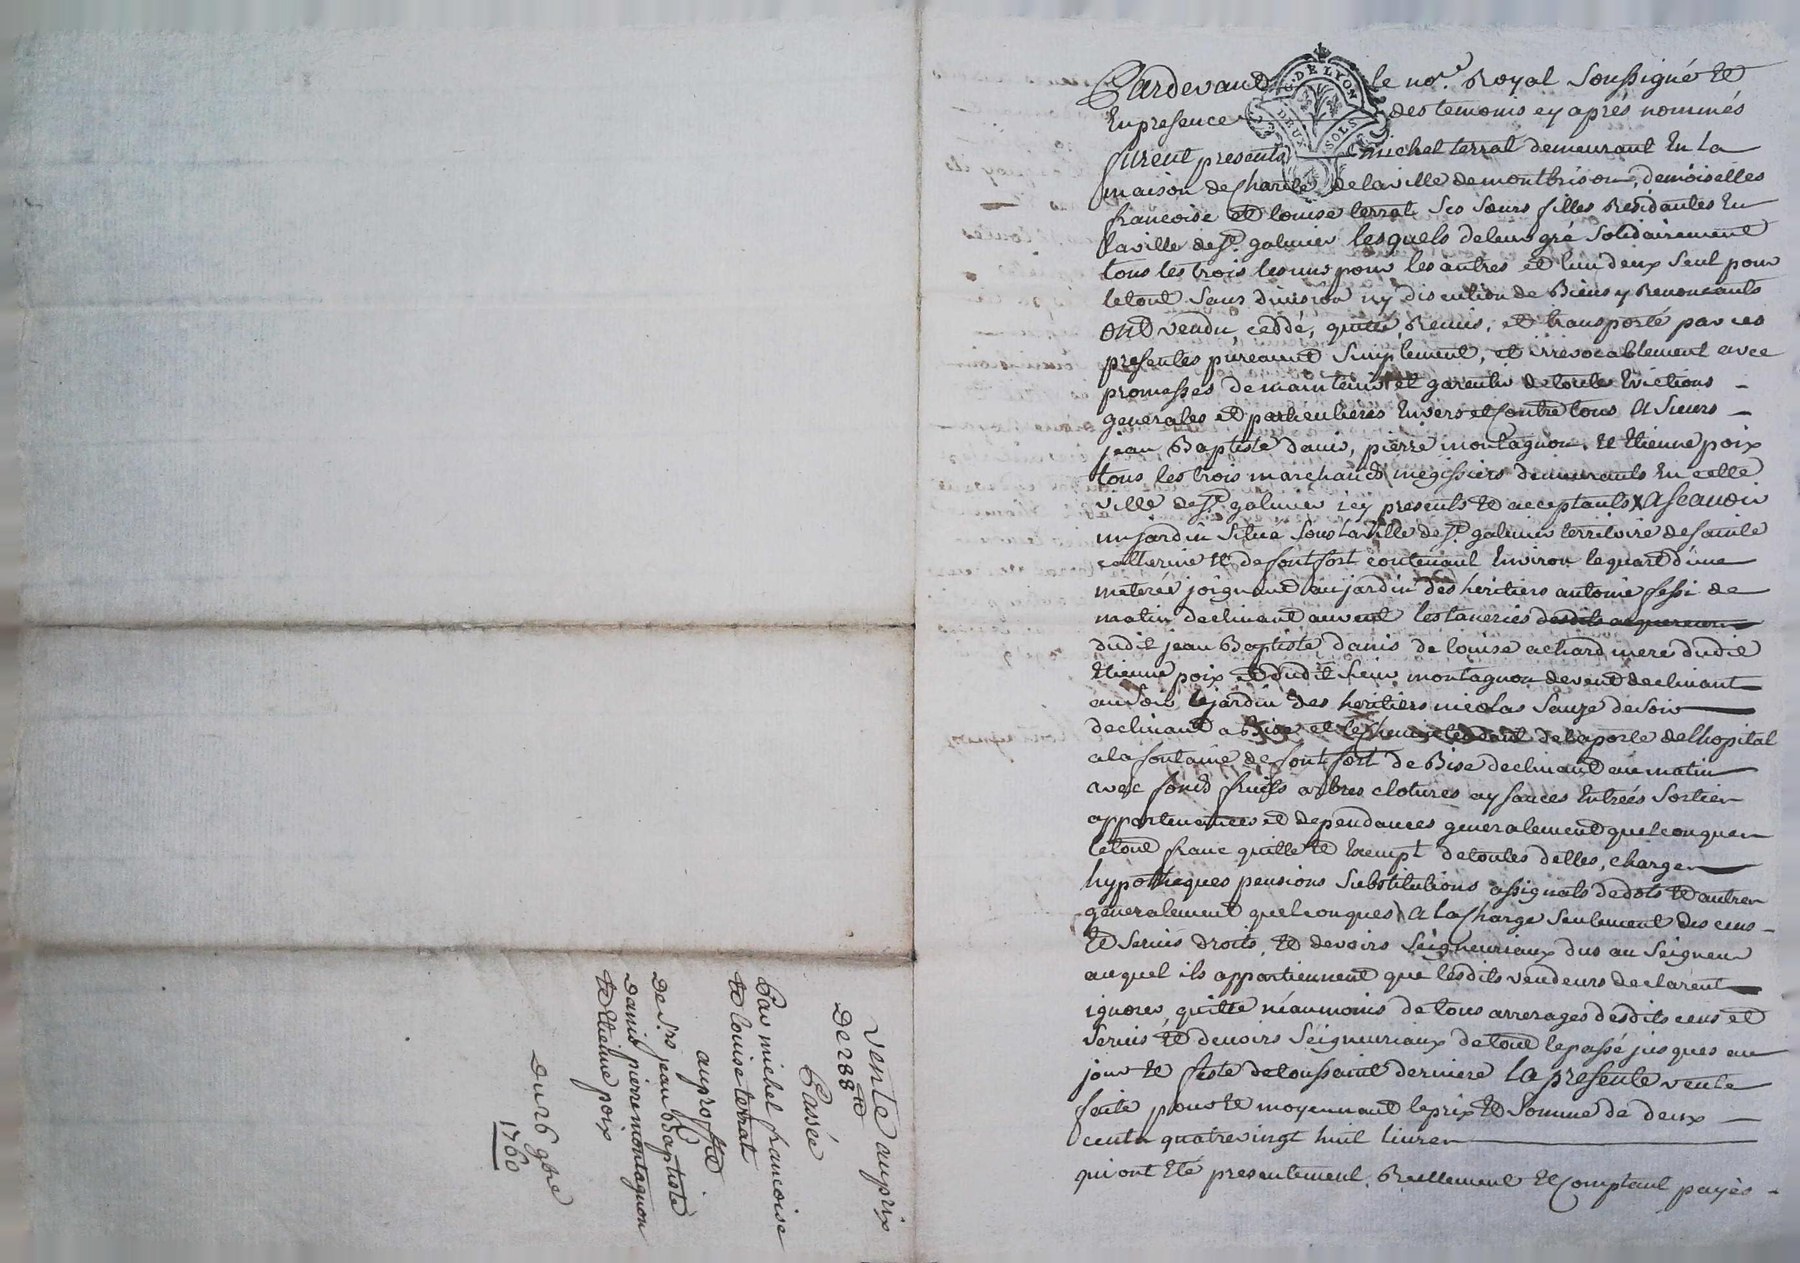 vente au prix
De 288 ₶
Passée
Par michel francoise
et louise terrat
au proffit
De Srs jean Baptiste
Danis pierre montagnon
et Etienne poix
Du 26 9bre
1760
G. DE LYON
DEUX SOLS
Pardevant le nore. Royal soussigné et
En presence des temoins cy aprés nommés
furent presents michel terrat demeurant En La
maison de Charité de la ville de montbrison, demoiselles
francoise et louise terrat ses sœurs filles Residantes En
la ville de St. galmier lesquels de leur gré solidairement
tous les trois les uns pour les autres et l'un deux seul pour
le tout sans division ny discution de Biens y Renoncants
ont vendu, ceddé, quitté, Remis, et transporté par ces
presentes purement simplement, et irrevocablement avec
promesses de maintenir et garentir de toutes Evictions
generales et particulieres Envers et Contre tous A sieurs
jean Baptiste danis, pierre montagnon, et Etienne poix
tous les trois marchands megissiers demeurants En cette
ville de St. galmier icy presents et acceptants, A scauoir
un jardin situé sous la Ville de St. galmier territoire de sainte
catherine et de fontfort contenant Environ le quart d'une
meterée joignant au jardin des heritiers antoine fessi de
matin declinant au vent les taneries desdits acquereurs
dudit jean Baptiste danis de louise achard mere dudit
Etienne poix et dudit sieur montagnon de vent declinant
au soir, le jardin des heritiers nicolas sauze de soir
declinant a Bise et le chemin tendant de la porte de lhopital
a la fontaine de font fort de Bise declinant au matin
avec fonds fruits arbres clotures aysances Entrées sorties
appartenances et dependances generalement quelconques
le tout franc quitte et Exempt de toutes dettes, charges
hypotheques pensions substitutions assignats de dots et autres
generalement quelconques, A la Charge seulement des cens
et servis droits, et devoirs seigneuriaux dus au seigneur
auquel ils appartiennent que lesdits vendeurs declarent
ignorer, quitte néanmoins de tous arrerages desdits cens et
servis et devoirs seigneuriaux de tout le passé jusques au
jour et feste de toussaint derniere La presente vente
faite pour et moyennant le prix et somme de deux
cents quatre vingt huit livres
qui ont Eté presentement, Reellement et Comptant payés